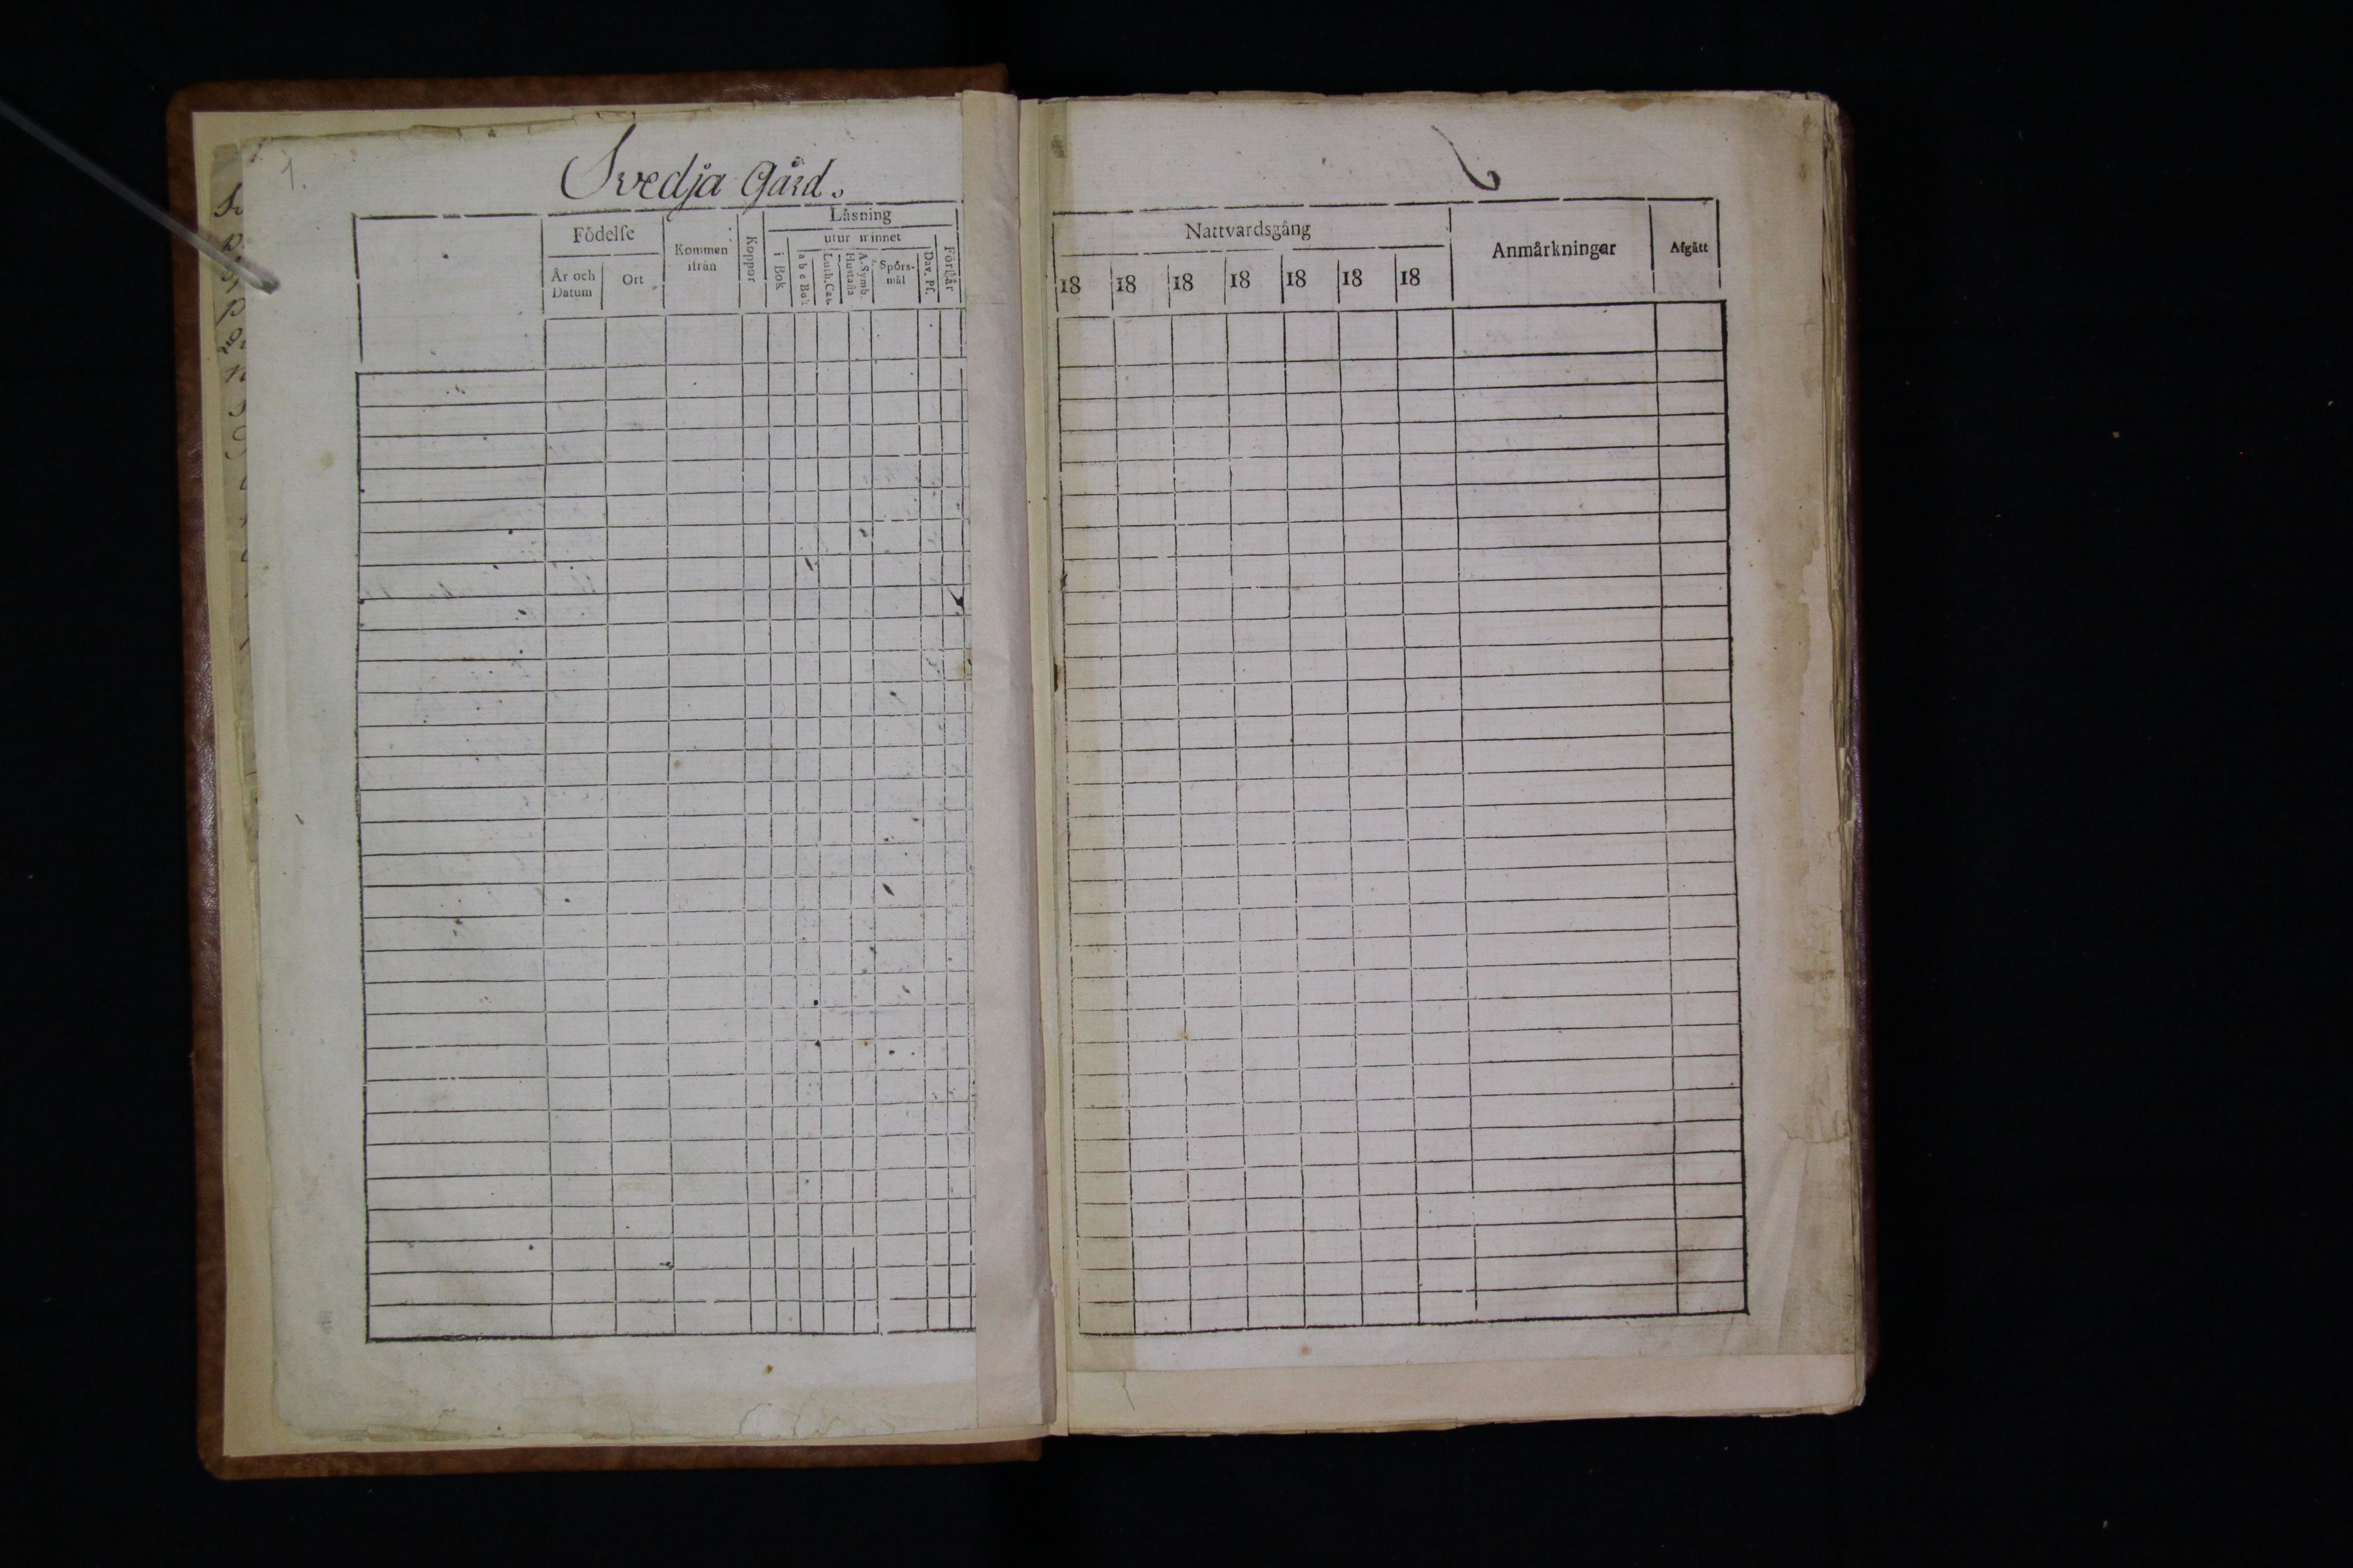 1.
Svedja Gård.
Födelse
År och Datum
Ort
Kommen ifrån
Koppor
Läsning
utur minnet
i Bok
a b c Bok
Luth. Cat.
Hustafla
A. Symb.
Spörs-
mål
Dav. Ps.
Förstår
Nattvardsgång
18 18 18 18 18 18 18
Anmärkningar
Afgått